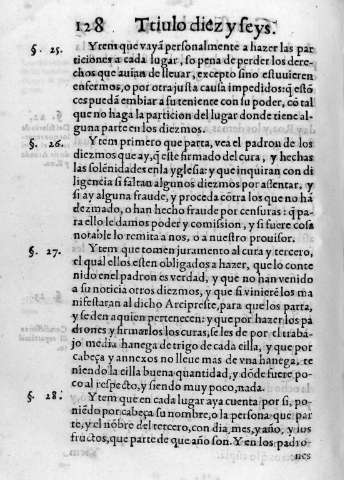 128 Ttiulo diez y seys.
§. 25. Y tem que vayã personalmente a hazer las par
ticiones a cada lugar, so pena de perder los dere-
chos que auian de lleuar, excepto sino estuuieren
enfermos, o por otra justa causa impedidos: q̃ estõ
ces puedã embiar a su teniente con su poder, cõ tal
que no haga la particion del lugar donde tiene al-
guna parte en los diezmos.
§. 26. Y tem primero que parta, vea el padron de los
diezmos que ay, q̃ este firmado del cura, y hechas
las solẽnidades en la yglesia: y que inquiran con di
ligencia si faltan algunos diezmos por assentar, y
si ay alguna fraude, y proceda cõtra los que no hã
dezmado, o han hecho fraude por censuras: q̃ pa-
ra ello le damos poder y comission, y si fuere cosa
notable lo remita a nos, o a nuestro prouisor.
§. 27. Y tem que tomen juramento al cura y tercero,
el qual ellos esten obligados a hazer, que lo conte
nido en el padron es verdad, y que no han venido
a su noticia otros diezmos, y que si vinierẽ los ma
nifestaran al dicho Arcipreste, para que los parta,
y se den a quien pertenecen: y que por hazer los pa
drones y firmarlos los curas, se les de por el traba-
jo media hanega de trigo de cada cilla, y que por
cabeça y annexos no lleue mas de vna hanega, te
niendo la cilla buena quantidad, y dõde fuere po
co al respecto, y siendo muy poco, nada.
§. 28. Y tem que en cada lugar aya cuenta por si, po-
niẽdo por cabeça su nombre, o la persona que par
te, y el nõbre del tercero, con dia, mes, y año, y los
fructos, que parte de que año son. Y en los padro-
nes